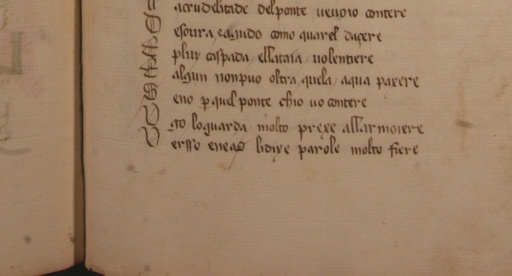 acrudelitade delponte uevoio contere
esoura cagudo como quarel dacere
plu cospada ellataia uolentiere
algun nonpuo oltra quela aqua paxere
eno p quel ponte chio uo contere
lo guarda molto prexe allarmoiere
ersso eneas lidixe parole molto fiere